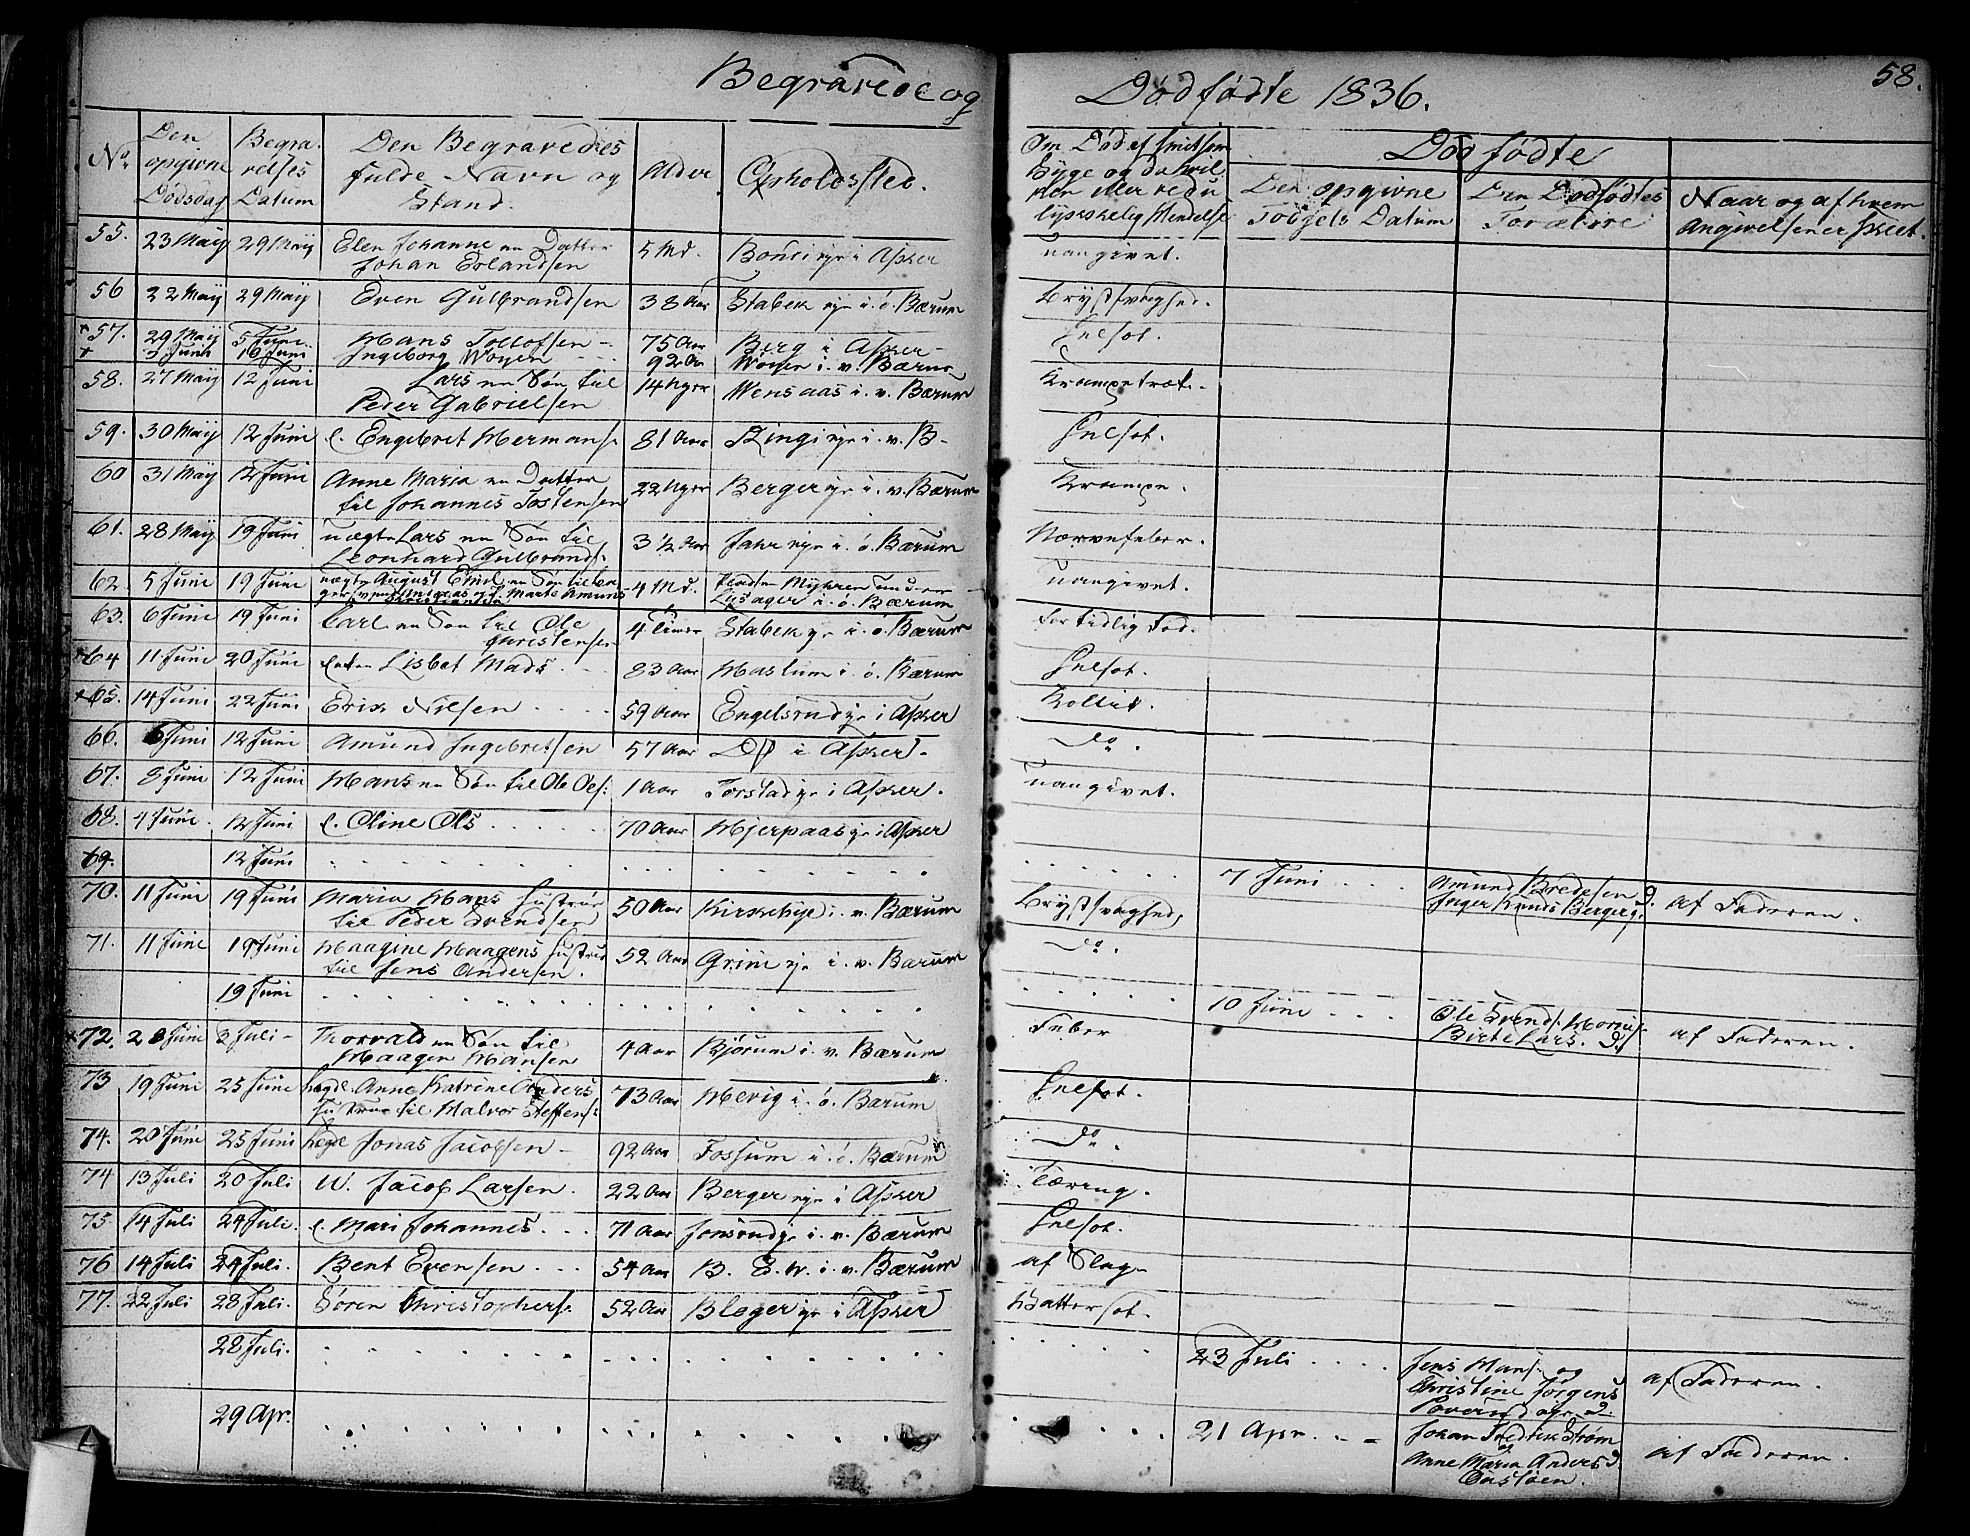 Begravede og Dødfødte 1836.
58.
No
Den opgivne Dødsdag
Begravelses Datum
Den Begravedes fulde Navn og Stand.
Alder
Opholdssted.
Om Død af smitsom Syge og da hvilken eller ved ulykkelig Hendelse
Dødfødte
Den opgivne Fødsels Datum
Den Dødfødtes Forældre
Naar og af hvem Angivelsen er skeet.
55. 23 Maij 29 Maij Elen Johanne en Datter Johan Erlandsen 5 Md. i Asker uangivet.
56 22 Maij 29 Maij Even Gulbrandsen 38 Aar Stabek eje i. ö. Bærum Brystsvaghed.
57. 29 Maij 5 Juni Hans Tollofsen 75 Aar Berg i Asker
+ 5 Juni 10 Juni Ingeborg Wøyen 92 Aar Wøien i. v. Bærum
58. 27 Maij 12 Juni Lars en Søn til Peder Gabrielsen 14 Uger Wensaas i. v. Bærum
59. 30 Maij 12 Juni e. Engebret Hermans. 81 Aar Ringi eje i. v. B-
60 31 Maij 12 Juni Anne Maria en Datter til Johannes Tostensen 22 Uger Berger eje i. v. Bærum Krampe.
61. 28 Maij 19 Juni uægte Lars en Søn til Leonhard Gulbrands. 3 ½ Aar Jahr eje i. ö. Bærum Nervefeber.
62. 5 Juni 19 Juni uægte August Emil en Søn til 4 Md. i. ö. Bærum uangivet.
63. 6 Juni 19 Juni Carl en Søn til Ole Christensen 4 Timer Stabek eje i. ö. Bærum For tidlig Fød.
+64 11 Juni 20 Juni Lisbet Mads. 83 Aar Haslum i. ö. Bærum
+65. 14 Juni 22 Juni Erik Nilsen 59 Aar Engelsrud eje i Asker
66. 6 Juni 12 Juni Amund Ingebretsen 57 Aar Do i Asker. Do.
67. 8 Juni 12 Juni Hans en Søn til Ole Ols. 1 Aar Torstad eje i Asker. uangivet.
68. 4 Juni 12 Juni e. Oline Ols 70 Aar Hjerpaas eje i Asker
69. 12 Juni 7 Juni Amund Bredesen og Inger Knuds Berger af Faderen.
70. 11 Juni 19 Juni Maria Hans Hustrue til Peder Svendsen 50 Aar Kirkebye i. v. Bærum Brystsvaghed,
71. 11 Juni 19 Juni Haagine Haagens Hustrue til Jens Andersen. 52 Aar Grini eje i. v. Bærum Do.
19 Juni 10 Juni Ole Svends. Birte Lars. af Faderen.
+72. 2 Juli Thorvald en Søn til Haagen Hansen 4 Aar Bjørum i. v. Bærum Feber
73 19 Juni 25 Juni Anne Katrine Anders Hustrue til Halvor Steffens. 73 Aar Hevig i. ö. Bærum
74. 20 Juni 25 Juni Jonas Jacobsen 92 Aar Fossum i. ö. Bærum Do.
74 13 Juli 20 Juli U. Jacob Larsen. 22 Aar Berger eje i Asker Tæring.
75 14 Juli 24 Juli. e. Mari Johannes. 71 Aar Jonsrud eje i. v. Bærum
76 14 Juli 24 Juli. Bent Evensen 54 Aar B. E. W. i. v. Bærum af Slag
77. 22 Juli 28 Juli. Søren Christophers. 52 Aar i Asker Vattersot.
28 Juli. 23 Juli Jens Hans. og Christine Jørgens af Faderen.
29 Apr. 21 Apr. Johan Fredrik Strøm og Anne Maria Anders D. af Faderen.